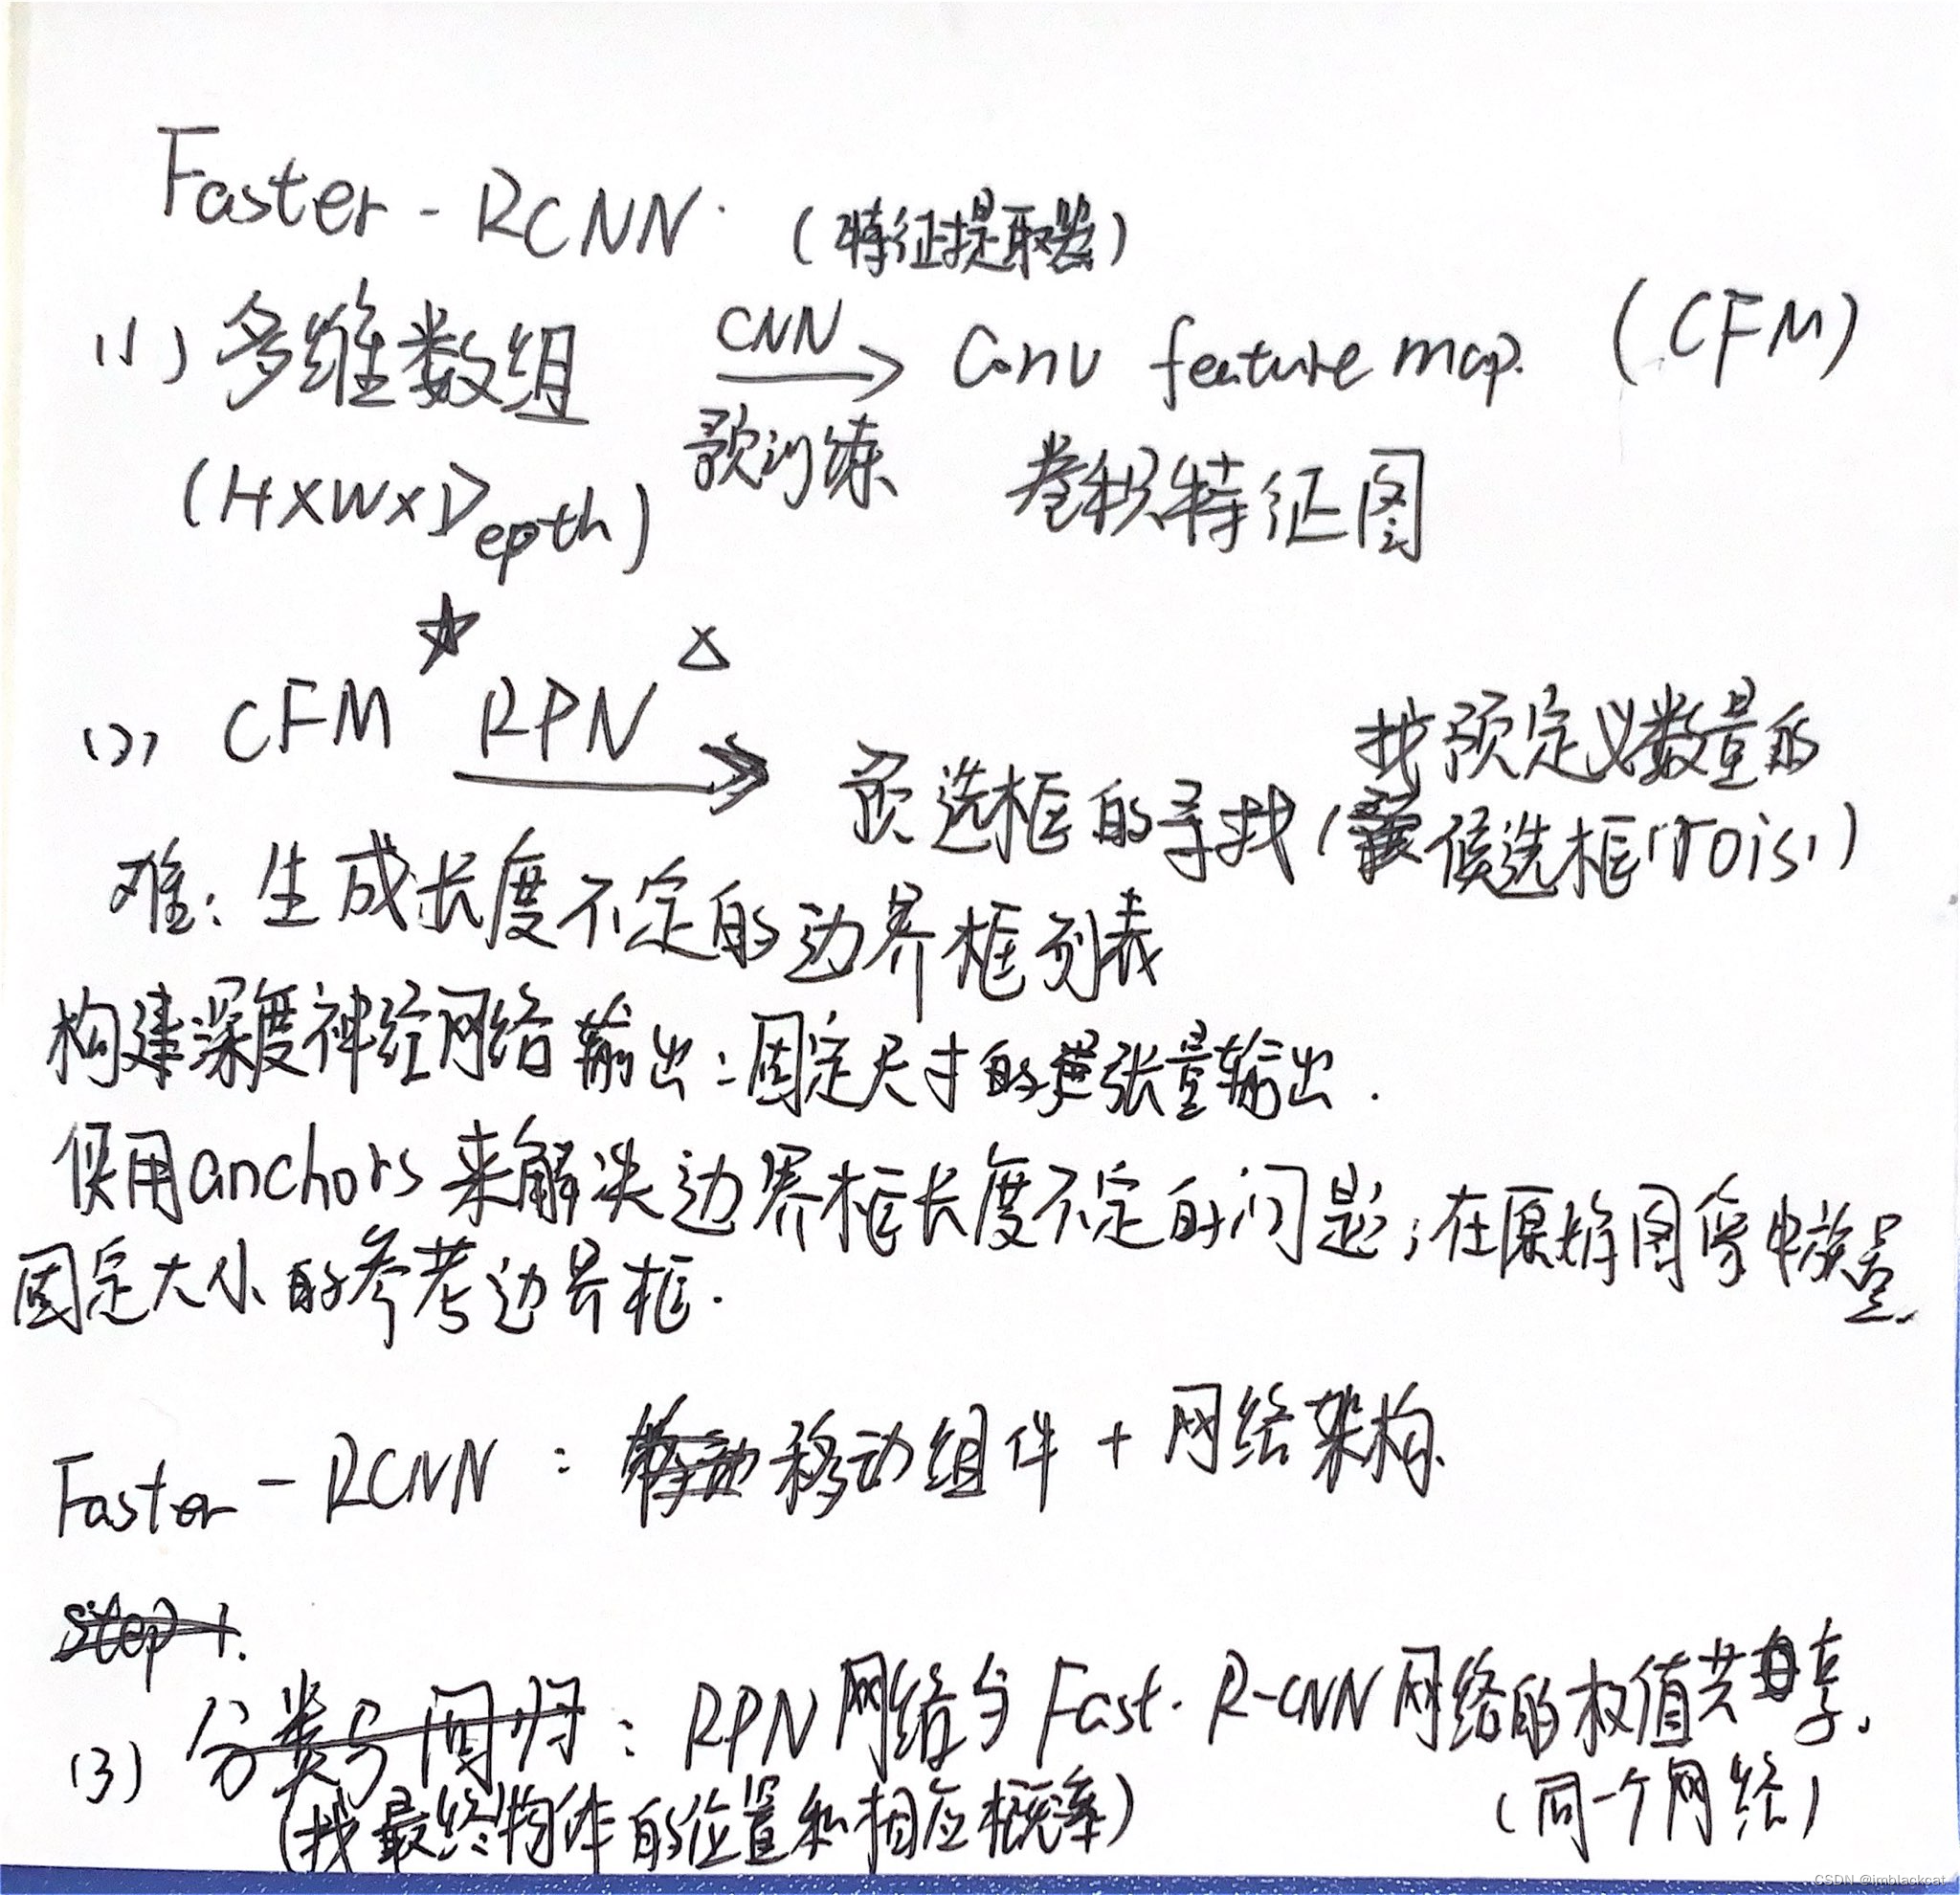 Faster-RCNN. (特征提取器)
(1) 多维数组 CNN Conv feature map. (CFM)
(H×W×Depth) 预训练 卷积特征图
(2) CFM RPN 预选框的寻找 (找预定义数量的
候选框(rois))
难: 生成长度不定的边界框列表
构建深度神经网络输出: 固定尺寸的张量输出.
使用anchors来解决边界框长度不定的问题; 在原始图像中放置
固定大小的参考边界框.
Faster-RCNN: 移动组件 + 网络架构
step 1.
(3) 分类与回归: RPN网络与Fast.R-CNN网络的权值共享.
(找最终物体的位置和相应概率) (同一个网络)
CSDN @imblackcat